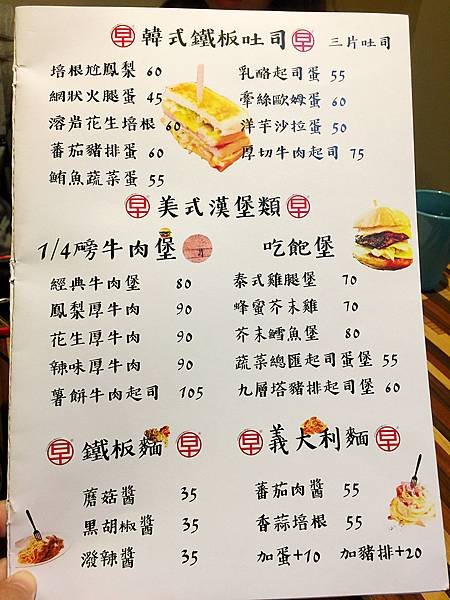 早 韓式鐵板吐司 早 三片吐司
培根尬鳳梨 60 乳酪起司蛋 55
網狀火腿蛋 45 牽絲歐姆蛋 50
溶岩花生培根 60 洋芋沙拉蛋 50
蕃茄豬排蛋 60 厚切牛肉起司 75
鮪魚蔬菜蛋 55
早 美式漢堡類 早
1/4磅牛肉堡 吃飽堡
經典牛肉堡 80 泰式雞腿堡 70
鳳梨厚牛肉 90 蜂蜜芥末雞 70
花生厚牛肉 90 芥末鱈魚堡 80
辣味厚牛肉 90 蔬菜總匯起司蛋堡 55
薯餅牛肉起司 105 九層塔豬排起司堡 60
早 鐵板麵 早 義大利麵 早
蘑菇醬 35 蕃茄肉醬 55
黑胡椒醬 35 香蒜培根 55
潑辣醬 35 加蛋+10 加豬排+20